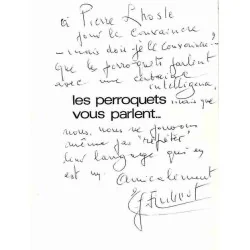 à Pierre Lhoste
pour le convaincre
- mais dois-je le convaincre -
que les perroquets parlent
avec une certaine
intelligence,
les perroquets
vous parlent...
mais que
nous, nous ne pouvons
même pas "répéter"
leur language qui en
est un. Amicalement